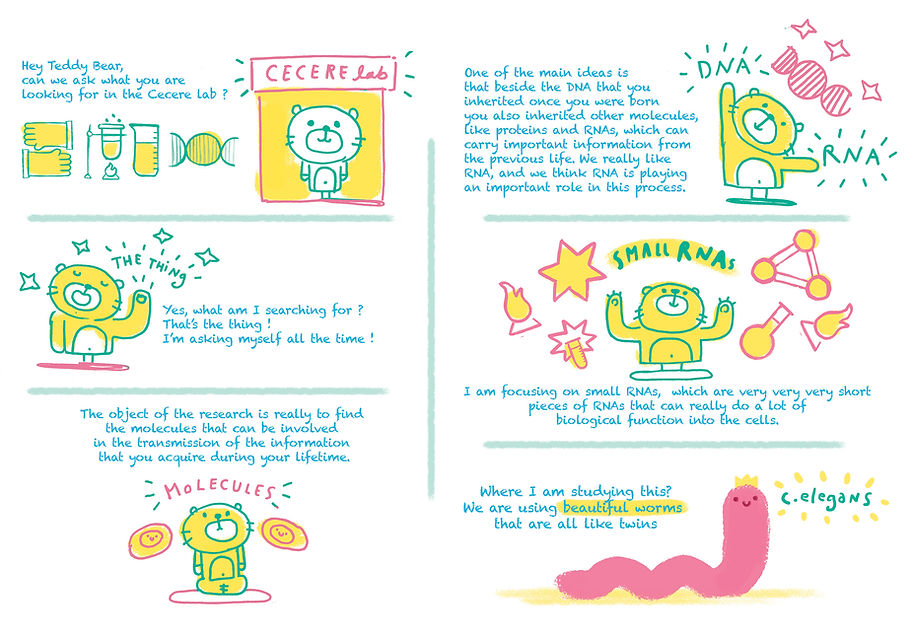 Hey Teddy Bear,
can we ask what you are
looking for in the Cecere lab ?
CECERE lab
THE THING
Yes, what am I searching for ?
That's the thing !
I'm asking myself all the time !
The object of the research is really to find
the molecules that can be involved
in the transmission of the information
that you acquire during your lifetime.
MOLECULES
One of the main ideas is
that beside the DNA that you
inherited once you were born
you also inherited other molecules,
like proteins and RNAs, which can
carry important information from
the previous life. We really like
RNA, and we think RNA is playing
an important role in this process.
DNA
RNA
SMALL RNAs
I am focusing on small RNAs, which are very very very short
pieces of RNAs that can really do a lot of
biological function into the cells.
Where I am studying this?
We are using beautiful worms
that are all like twins
C.elegans